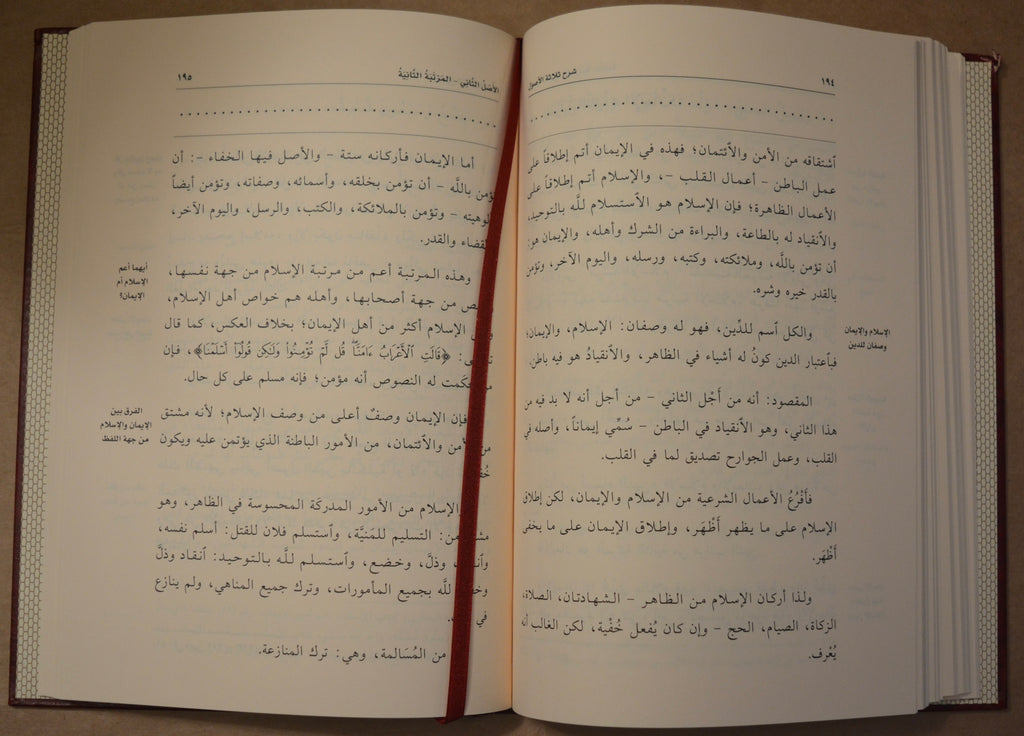 ١٩٤
شرح ثلاثة الأصول
ٱشتقاقه من الأمن والٱئتمان؛ فهذه في الإيمان أتم إطلاقاً على
عمل الباطن - أعمال القلب -، والإسلام أتم إطلاقاً على
الأعمال الظاهرة؛ فإن الإسلام هو الٱستسلام للَّه بالتوحيد،
والٱنقياد له بالطاعة، والبراءة من الشرك وأهله، والإيمان هو:
أن تؤمن باللَّه، وملائكته، وكتبه، ورسله، واليوم الآخر، وتؤمن
بالقدر خيره وشره.
الإسلام والإيمان
وصفان للدين
والكل ٱسم للدِّين، فهو له وصفان: الإسلام، والإيمان؛
فبٱعتبار الدين كونُ له أشياء في الظاهر، والٱنقيادُ هو فيه باطن.
المقصود: أنه من أَجْل الثاني - من أجل أنه لا بد فيه من
هذا الثاني، وهو الٱنقياد في الباطن - سُمِّي إيماناً، وأصله في
القلب، وعمل الجوارح تصديق لما في القلب.
فأَفْرُعُ الأعمال الشرعية من الإسلام والإيمان، لكن إطلاق
الإسلام على ما يظهر أَظْهَر، وإطلاق الإيمان على ما يخفى
أَظْهَر.
ولذا أركان الإسلام من الظاهر - الشهادتان، الصلاة،
الزكاة، الصيام، الحج - وإن كان يُفعل خُفْية، لكن الغالب أنه
يُعْرف.
الأَصْلُ الثَّانِي - المَرْتَبَةُ الثَّانِيَةُ
١٩٥
أما الإيمان فأركانه ستة - والأصل فيها الخفاء -: أن
باللَّه - أن تؤمن بخلقه، وأسمائه، وصفاته، وتؤمن أيضاً
- وتؤمن بالملائكة، والكتب، والرسل، واليوم الآخر،
والقدر.
أيهما أعم
الإسلام أم
الإيمان؟
وهذه المرتبة أعم من مرتبة الإسلام من جهة نفسها،
من جهة أصحابها، وأهله هم خواص أهل الإسلام،
الإسلام أكثر من أهل الإيمان؛ بخلاف العكس، كما قال
﴿قَالَتِ ٱلْأَعْرَابُ ءَامَنَّا ۖ قُل لَّمْ تُؤْمِنُوا۟ وَلَٰكِن قُولُوٓا۟ أَسْلَمْنَا﴾، فإن
حكمت له النصوص أنه مؤمن؛ فإنه مسلم على كل حال.
الفرق بين
الإيمان والإسلام
من جهة اللفظ
فإن الإيمان وصفٌ أعلى من وصف الإسلام؛ لأنه مشتق
والٱئتمان، من الأمور الباطنة الذي يؤتمن عليه ويكون
الإسلام من الأمور المدركَة المحسوسة في الظاهر، وهو
من: التسليم للمَنيَّة، وٱستسلم فلان للقتل: أسلم نفسه،
وذلَّ، وخضع، وٱستسلم للَّه بالتوحيد: ٱنقاد وذلَّ
للَّه بجميع المأمورات، وترك جميع المناهي، ولم ينازع
في
من المُسَالمة، وهي: ترك المنازعة.